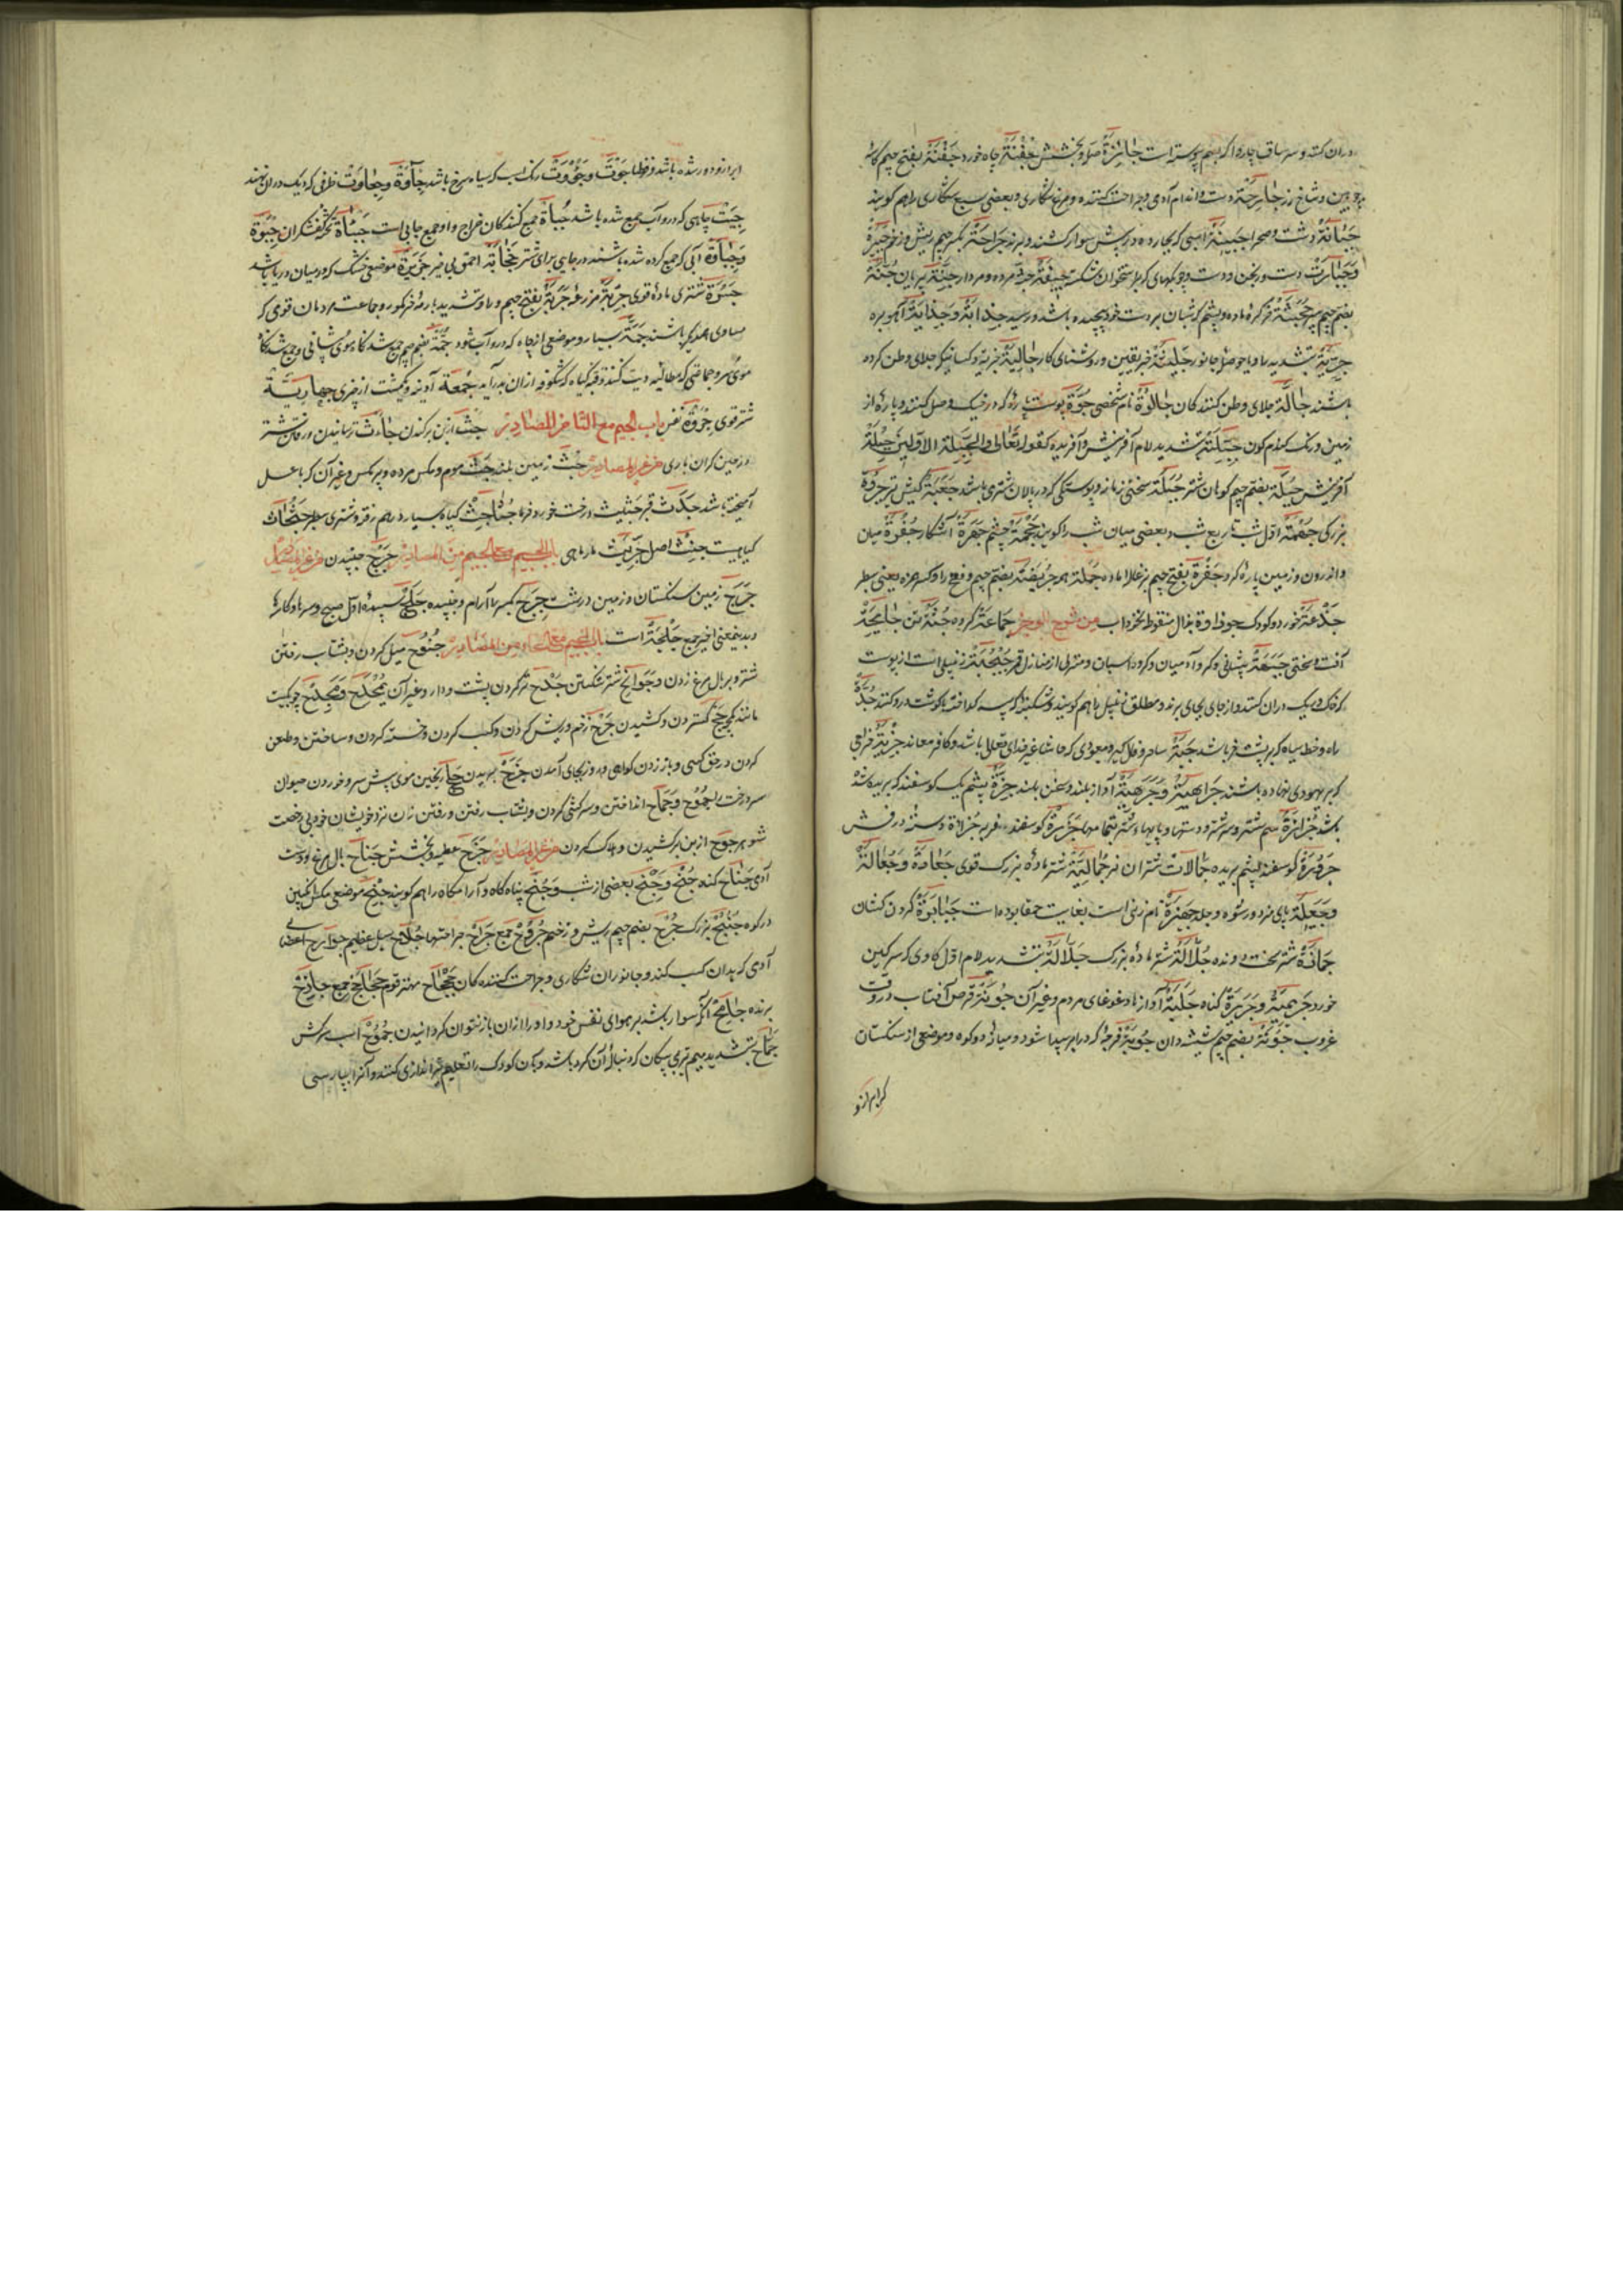 دران کنند و سر ساق چاروا که بسم پیوسته است جائزة صله و بخشش جفنة چاه خورد جفنة بفتح جیم کاسه
چوبین و شاخ رز جارحة دست و اندام آدمی و جراحت کننده و مرغ شکاری و بعضی سبع شکاری را هم گویند
جبانة دشت و صحرا جنیبة اسبی که بجا برده در پیش سوار کشند و برند جراحة بکسر جیم ریش و زخم جبیرة
و جبارت دست و چوبهای که بر استخوان شکسته جیفة جثه مرده و مردار جنة پریان جنة
بضم جیم سپر که شبان بر دست خود پیچیده باشد و ریسد جذابة و جدایة آهو بره
جریة بتشدید را و یا حوصله جانور جلیة خبر یقین و روشنای کار جالیة جزیه و کسانیکه جلای وطن کرده
باشند جالة جلای وطن کنندگان جالوة نام شخصی جوة پوست پاره که در خیک وصل کنند و پاره از
زمین و رنگ گندم گون جبلة بتشدید لام آفرینش و آفریده کقوله تعالی والجبلة الاولین جبلة
آفرینش جبلة بفتح جیم کوهان شتر جلبة سختی زمانه و پوستکی که در پالان شتری باشد جعبة کیش تیر جروة
بزرگی جهمة اول شب تا ربع شب و بعضی میان شب را گویند جحمة چشم جهرة آشکار جفرة میان
و اندرون و زمین پاره گرد جفرة بفتح جیم بزغاله ماده جملة همه جرئضة بضم جیم و فتح را و کسر همزه یعنی سطبر
جذعة خورد و کودک من شرح الموجز جماعة گروه جنة تن جائحة
آفت و سختی جبهة پیشانی و گروه آدمیان و گروه اسبان و منزلی از منازل قمر جبجبة زنبیلی است از پوست
راه و خط سیاه که بر پشت خر باشد جزیة خراجی
که بر یهودی نهاده باشند جراهیة و جرهیة آواز بلند و سخن بلند جزة پشم یک گوسفند که بریده شد
باشد جزارة سم شتر و سر شتر و دستها و پایهاء شتر جزرة گوسفند فربه جزازة دسته درفش
جزوزة گوسفند پشم بریده جمالات شتران نر جمالیة شتر ماده بزرگ قوی جعادة و جعالة
و جعیلة پای مزد و رشوه و حیله جهیزة نام زنی است بغایت حمقا بوده است جبابرة گردن کشان
جمازة شتر سخت رونده جلالة شتر ماده بزرگ جلالة بتشدید لام اول گاوی که سرگین
خورد جریمة و جریرة گناه جلبة آوازها و غوغای مردم و غیر آن جونة قرص آفتاب در وقت
غروب جونة بضم جیم شیشه دان جوبة فرجه که در ابر پیدا شود و میانه دو کوه و موضعی از سنگستان
که ابر ازو
ابر ازو دور شده باشد جوة و جؤوة رنگ اسب که سیاه سرخ باشد جآوة و جیاوة ظرفی که دیگ دران نهند
جیة چاهی که درو آب جمع شده باشد جباة جمع کنندگان خراج و او جمع جابی است جباة تخته کفشگران جبوة
و جباوة آبی که جمع کرده شده باشند در جایی برای شتر جخابة احمق بی خیر جزیرة موضعی خشک که در میان دریا باشد
جسرة شتری ماده قوی جربة مزرعه جربة بفتح جیم و را و تشدید با رمه خر گور و جماعت مردمان قوی که
مساوی همدیگر باشند جمة بسیار و موضعی از چاه که درو آب شود جمة بضم جیم جمع شدگاه موی پیشانی و جمع شدگاه
موی سر و جماعتی که مطالبه دیت کنند جمعة آدینه و یکمشت از چیزی جهادیة
شتر قوی جروة نفس باب الجیم مع الثا من المصادر جث از بن برکندن جأث ترسانیدن و رفتن شتر
و زمین گران باری من غیر المصادر جث زمین بلند جث موم و مگس مرده و پر مگس و غیر آن که با عسل
آمیخته باشد جدث قبر جثیث درخت خورد خرما جثاجث گیاه بسیار درهم رفته و شتری سطبر جثجاث
گیاهیست جنث اصل جریث مارماهی باب الجیم مع الجیم من المصادر جرج جنبیدن من غیر المصادر
جرج زمین سنگستان و زمین درشت جرج بکسر را آرام و جنبیده جلج سپیده اول صبح و سرها و کارها
و بدین معنی اخیر جمع جلجة است باب الجیم مع الحاء من المصادر جنوح میل کردن و بشتاب رفتن
شتر و بر بال مرغ زدن و جوانح شتر شکستن جدح تر کردن پشت و دارو و غیر آن بمجدح و مجدح چوبیست
مانند کمچه جح گستردن و کشیدن جرح زخم و ریش کردن و کسب کردن و خسته کردن و ساختن و طعن
کردن در حق کسی و باز زدن گواهی و روز بجای آمدن جزح بریدن جلح ریختن موی پیش سر و خوردن حیوان
سر درخت را جموح و جماح انداختن و سرکشی کردن و بشتاب رفتن و رفتن زن نزد خویشان خود بی رخصت
شوهر جوح از بن برکشیدن و هلاک کردن من غیر المصادر جزح عطیه و بخشش جناح بال مرغ و دست
آدمی جناح گناه جنح و جنح بعضی از شب و جنح پناه گاه و آرامگاه را هم گویند جبح موضعی مگس انگبین
در کوه جنبح بزرگ جرح بضم جیم ریش و زخم جروح جمع جرائح جراحتها جلاح سیل عظیم جوارح اعضای
آدمی که بدان کسب کند و جانوران شکاری و جراحت کننده گان جحجاح مهتر قوم جحاجح جمع جادح
برنده جامح آنکه سوار باشد بر هوای نفس خود و او را ازان باز نتوان گردانیدن جموح اسب سرکش
جماح بتشدید میم تیر بی پیکان که دنباله آن گرد باشد و بآن کودک را تعلیم تیراندازی کنند و آنرا بپارسی